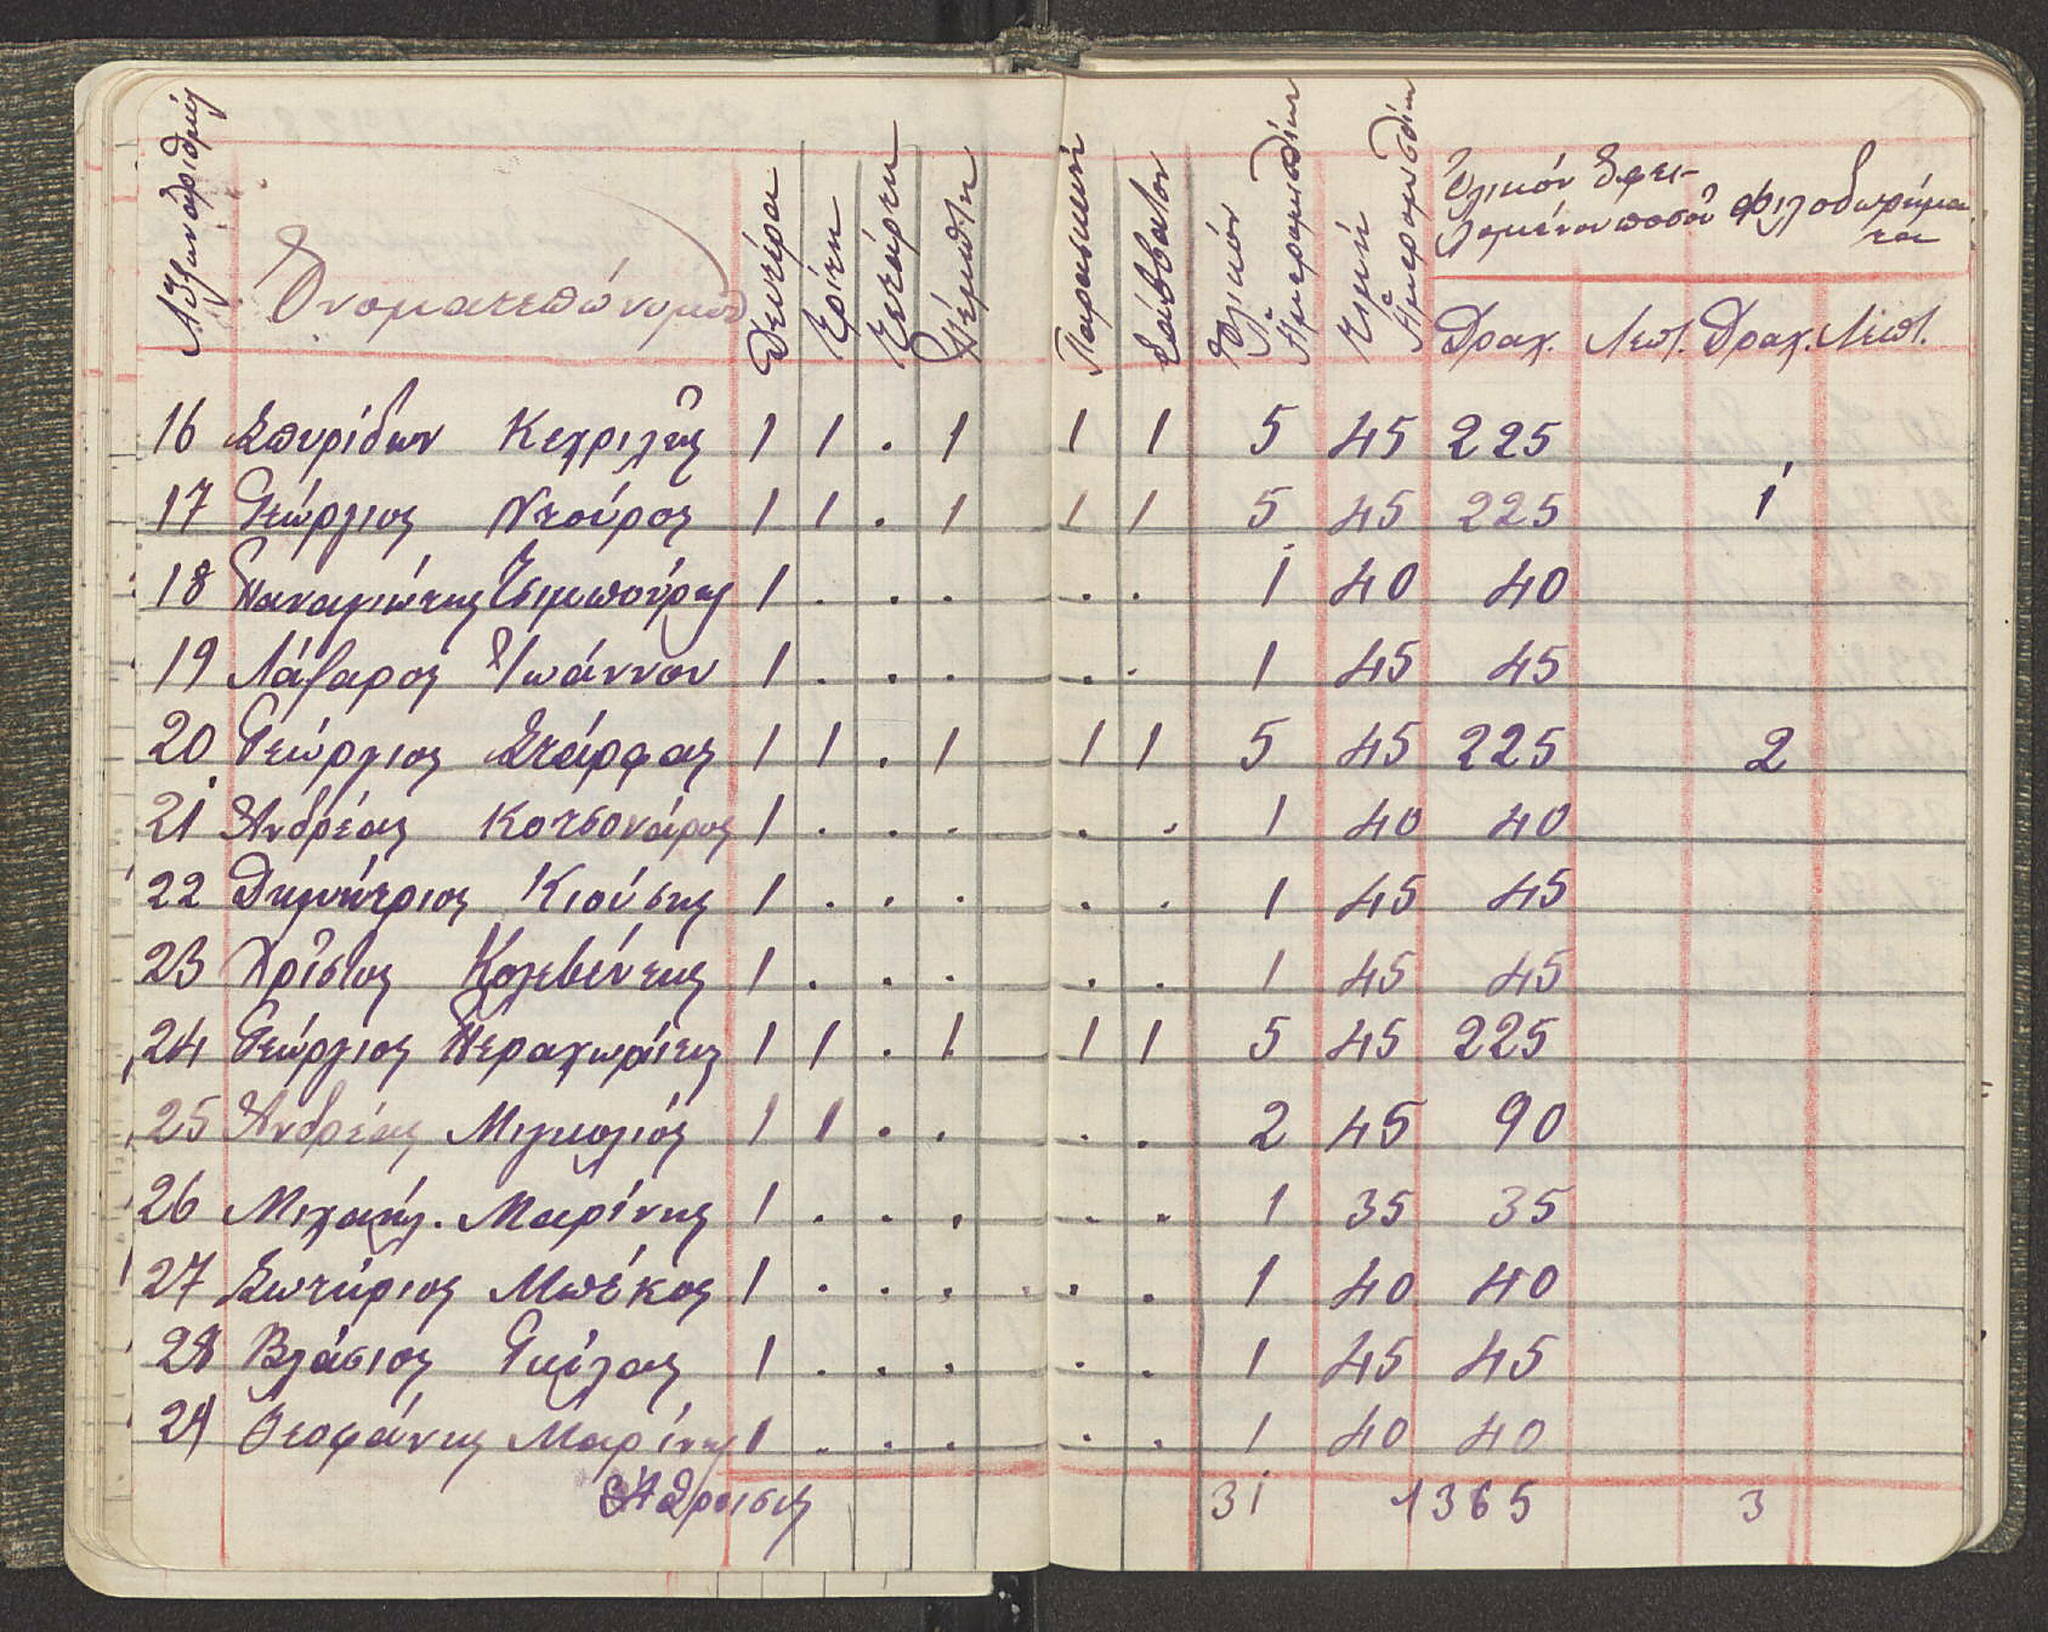 Αὔξων ἀριθμός Ὀνοματεπώνυμον Δευτέρα Τρίτη Τετάρτη Πέμπτη Παρασκευή Σάββατον Ὁλικόν Ἡμερομισθίων Τιμή Ἡμερομισθίων Ὁλικόν Ὀφει-
λομένου ποσοῦ Φιλοδωρήμα
τα
Δραχ. Λεπτ. Δραχ. Λεπτ.
16 Σπυρίδων 1 1 . 1 1 1 5 45 225
17 Γεώργιος Ντούρος 1 1 . 1 1 1 5 45 225 1
18 Παναγιώτης Τσιμπούρης 1 . . . . . 1 40 40
19 Λάζαρος Ἰωάννου 1 . . . . . 1 45 45
20 Γεώργιος Στάρφας 1 1 . 1 1 1 5 45 225 2
21 Ἀνδρέας Κοτσονάρος 1 . . . . . 1 40 40
22 Δημήτριος Κιούσης 1 . . . . . 1 45 45
23 Χρῖστος Κολεβέντης 1 . . . . . 1 45 45
24 Γεώργιος Περαχωρίτης 1 1 . 1 1 1 5 45 225
25 Ἀνδρέας 1 1 . . . . 2 45 90
26 Μιχαήλ. Μαρίνης 1 . . . . . 1 35 35
27 Σωτήριος Μπέκος 1 . . . . . 1 40 40
28 Βλάσιος Γκίλας 1 . . . . . 1 45 45
29 Θεοφάνης Μαρίνης 1 . . . . . 1 40 40
Ἄθροισις 31 1365 3